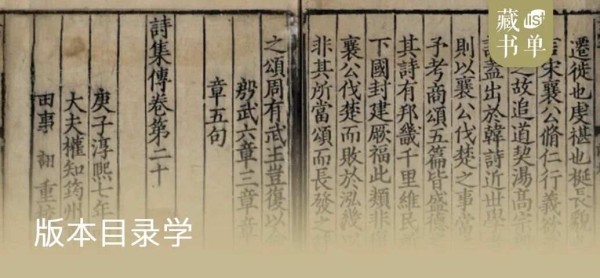 藏书单
list
遷徙也虔椹也梃長貌
言宋襄公脩仁行義欲
之故追道契湯高宗
詩蓋出於韓詩近世學
則以襄公伐楚之事當
予考商頌五篇皆盛德
其詩有邦畿千里維民
下國封建厥福此類非
襄公伐楚而敗於泓幾
非其所當頌而長發之
之頌周有武王豈復以
殷武六章三章章
章五句
詩集傳卷第二十
庚子淳熙七年
大夫權知筠州
田事 重
版本目录学